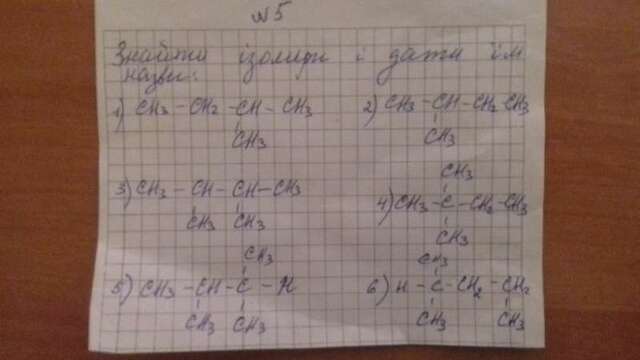 №5
Знайти ізомери і дати їм
назви:
1) CH3 - CH2 - CH - CH3 2) CH3 - CH - CH2 - CH3
CH3 CH3
CH3
3) CH3 - CH - CH - CH3 4) CH3 - C - CH2 - CH3
CH3 CH3 CH3
CH3 CH3
5) CH3 - CH - C - H 6) H - C - CH2 - CH2
CH3 CH3 CH3 CH3